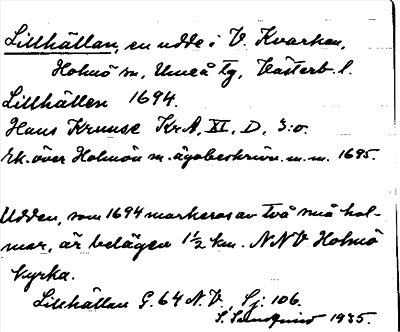 Lillhällan, en udde i V. Kvarken,
Holmö sn, Umeå tg, Västerb. l.
Lillhällen 1694.
Hans Kruuse KrA, XI, D, 3:o.
Ek. över Holmön m. ägobeskrivn. m.m. 1695.
Udden, som 1694 markeras av två små hol-
mar, är belägen 1½ km. NNV Holmö
kyrka.
Lillhällan G. 64 N.V. Sj: 106.
S. 1935.